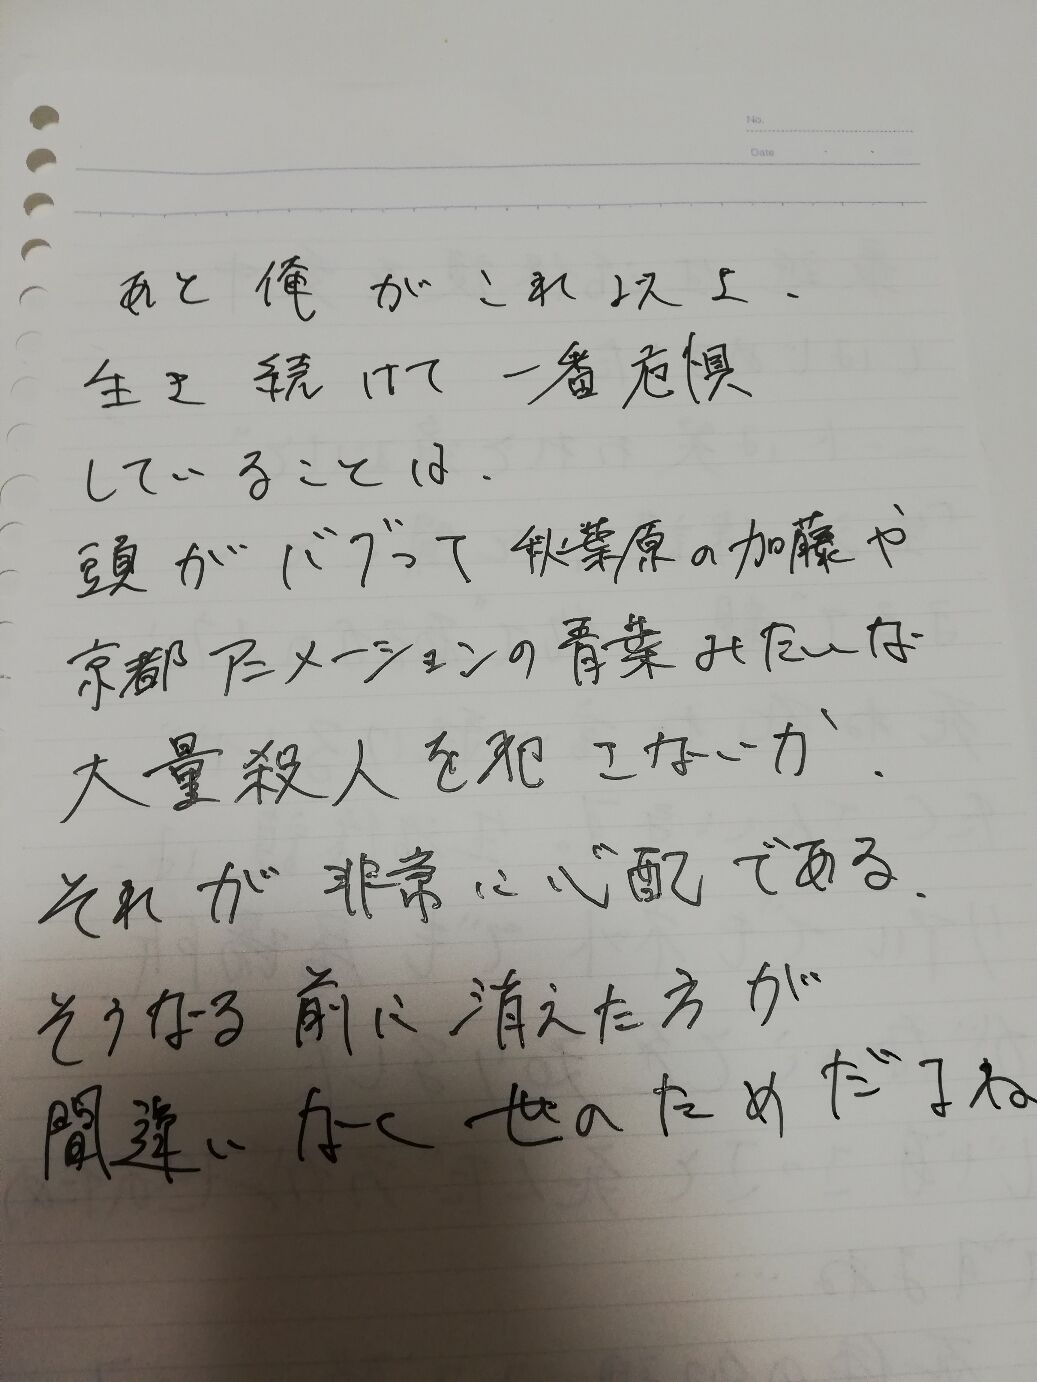 No.
Date
あと俺がこれ以上、
生き続けて一番危惧
していることは、
頭がバグって秋葉原の加藤や
京都アニメーションの青葉みたいな
大量殺人を犯さないか、
それが非常に心配である、
そうなる前に消えた方が
間違いなく世のためだよね